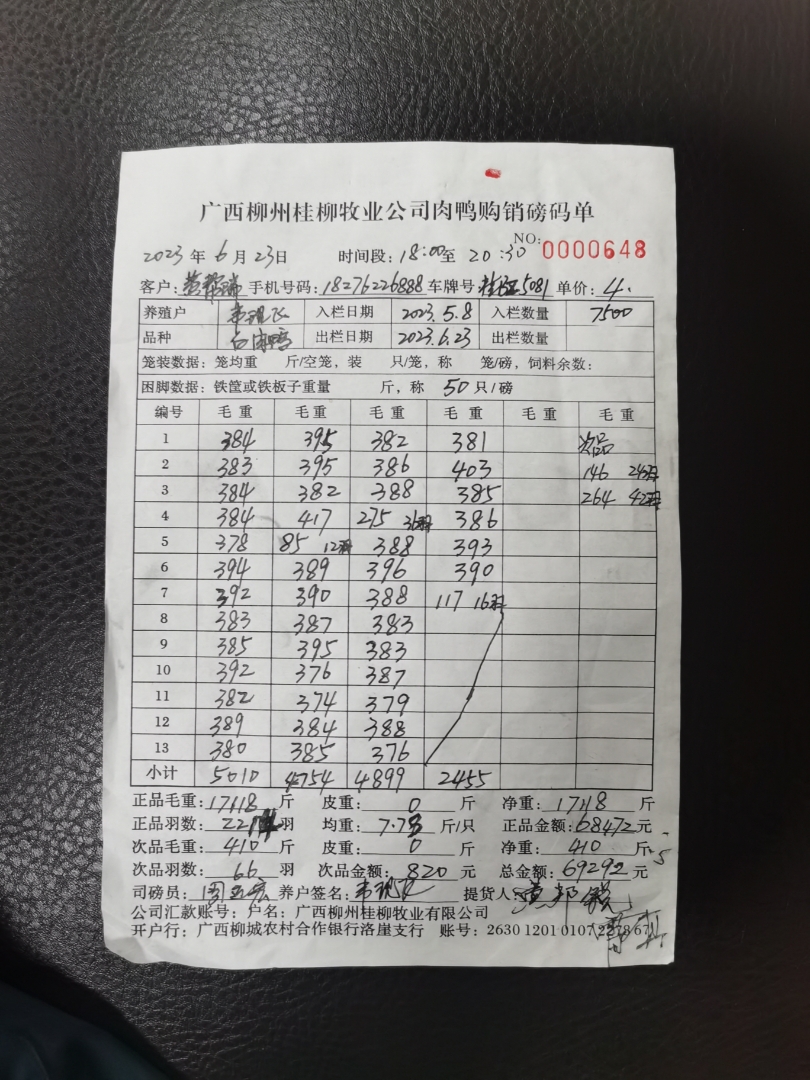 广西柳州桂柳牧业公司肉鸭购销磅码单
NO: 0000648
2023 年 6 月 23 日 时间段: 18:00 至 20:30
客户: 手机号码: 18276226888 车牌号 5081 单价: 4.
养殖户 入栏日期 2023.5.8 入栏数量 7500
品种 白肉鸭 出栏日期 2023.6.23 出栏数量
笼装数据: 笼均重 斤/空笼, 装 只/笼, 称 笼/磅, 饲料余数:
困脚数据: 铁筐或铁板子重量 斤, 称 50 只/磅
编号 毛重 毛重 毛重 毛重 毛重 毛重
1 384 395 382 381 次品
2 383 395 386 403 146 24羽
3 384 382 388 385 264 42羽
4 384 417 275 36羽 386
5 378 85 12羽 388 393
6 394 389 396 390
7 392 390 388 117 16羽
8 383 387 383
9 385 395 383
10 392 376 387
11 382 374 379
12 389 384 388
13 380 385 376
小计 5010 4754 4899 2455
正品毛重: 17118 斤 皮重: 0 斤 净重: 17118 斤
正品羽数: 羽 均重: 7.73 斤/只 正品金额: 68472 元
次品毛重: 410 斤 皮重: 0 斤 净重: 410 斤
次品羽数: 66 羽 次品金额: 820 元 总金额: 69292 元
司磅员: 养户签名: 提货人:
公司汇款账号: 户名: 广西柳州桂柳牧业有限公司
开户行: 广西柳城农村合作银行洛崖支行 账号: 2630 1201 0107